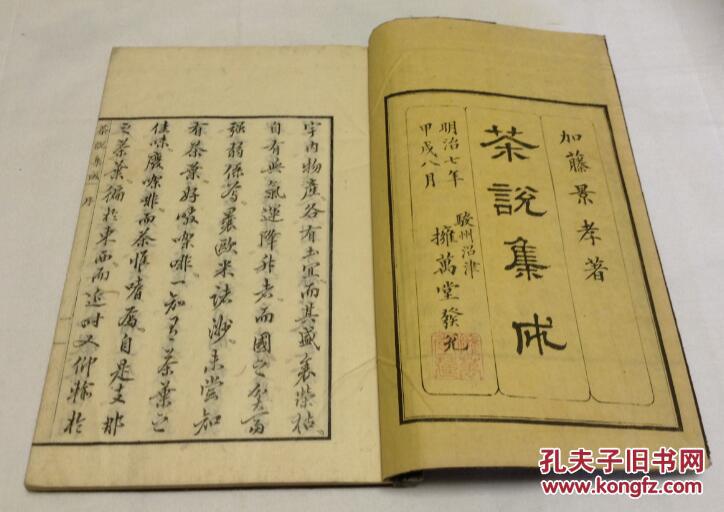 加藤景孝著
茶說集成
駿州沼津
擁萬堂發兌
明治七年
甲戌八月
宇內物產各有土宜而其盛衰榮枯
自有與氣運降升者而國之貧富
强弱係焉曩歐米諸洲未嘗知
有茶葉好啜架啡一知了茶葉之
佳味廢架啡而茶惟嗜焉自是支那
之茶葉徧於東西而近時又仰輸於
茶說集成 序
孔夫子旧书网
www.kongfz.com